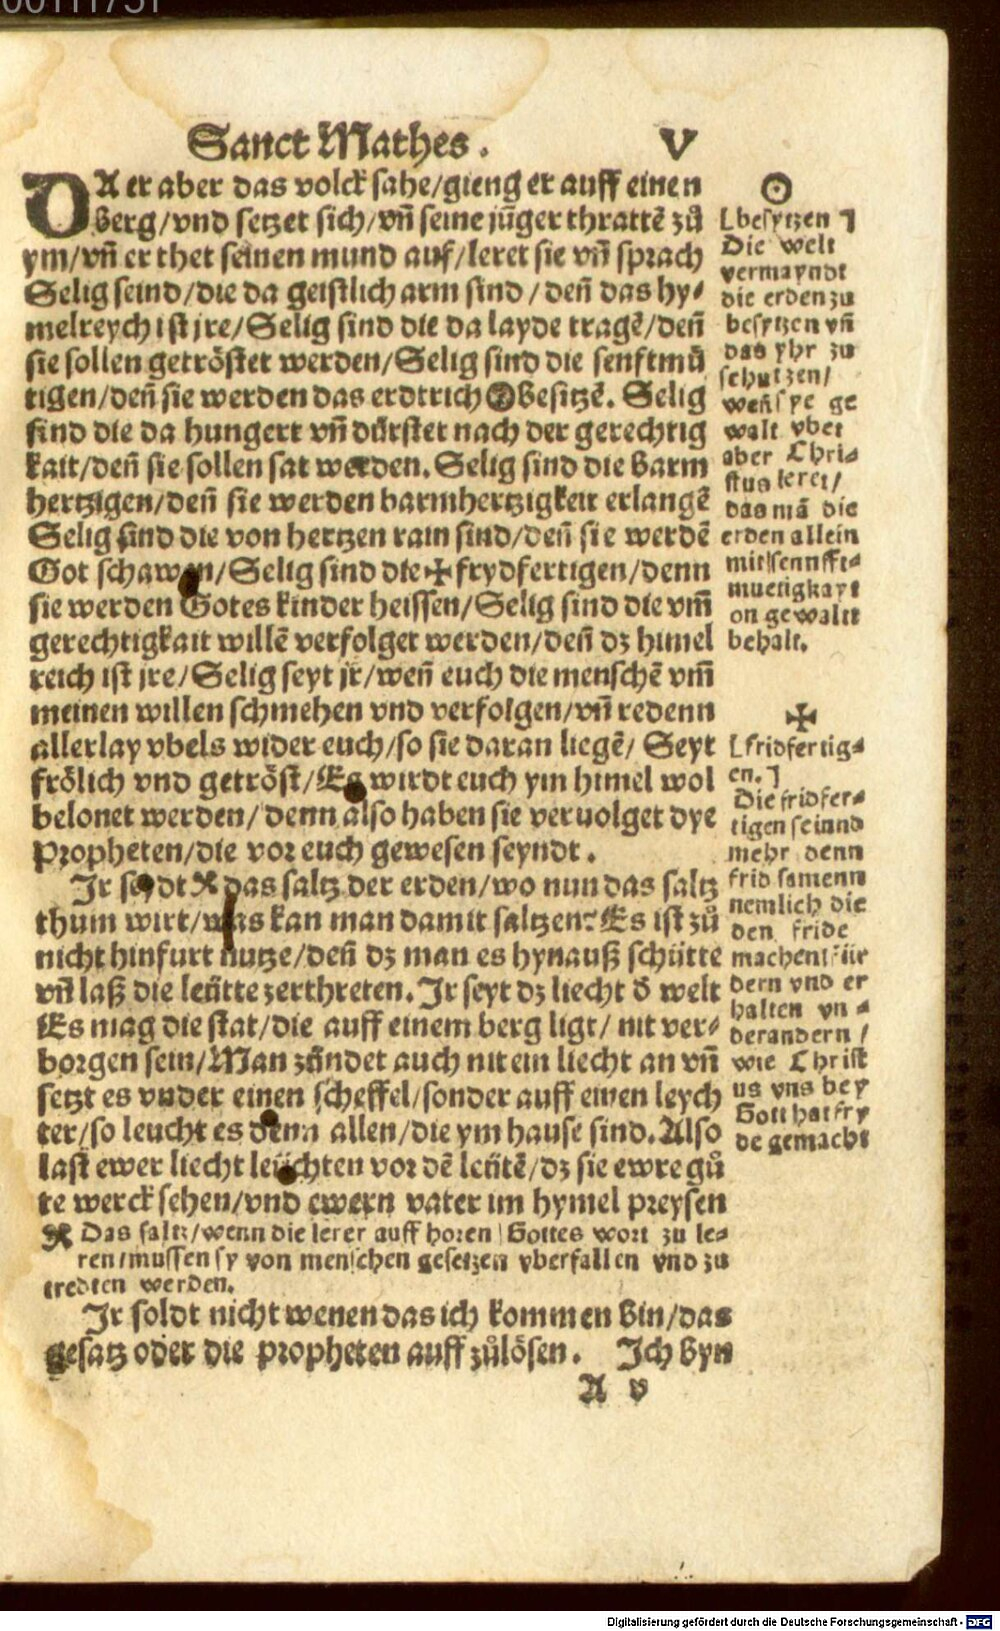 00111731
Sanct Mathes. V
DA er aber das volck sahe/gieng er auff einen
berg/vnd setzet sich/vn̄ seine jūger thrattē zů
ym/vn̄ er thet seinen mund auf/leret sie vn̄ sprach
Selig seind/die da geistlich arm sind/den̄ das hy-
melreych ist jre/Selig sind die da layde tragē/den̄
sie sollen getröstet werden/Selig sind die senftmů
tigen/den̄ sie werden das erdtrich ☉ besitzē. Selig
sind die da hungert vn̄ dürstet nach der gerechtig
kait/den̄ sie sollen sat werden. Selig sind die barm
hertzigen/den̄ sie werden barmhertzigkeit erlangē
Selig sind die von hertzen rain sind/den̄ sie werdē
Got schawen/Selig sind die ✠ frydfertigen/denn
sie werden Gotes kinder heissen/Selig sind die vm̄
gerechtigkait willē verfolget werden/den̄ dz himel
reich ist jre/Selig seyt jr/wen̄ euch die menschē vm̄
meinen willen schmehen vnd verfolgen/vn̄ redenn
allerlay vbels wider euch/so sie daran liegē/ Seyt
frölich vnd getröst/Es wirdt euch ym himel wol
belonet werden/denn also haben sie veruolget dye
Propheten/die vor euch gewesen seyndt.
Jr seydt ⌘ das saltz der erden/wo nun das saltz
thum wirt/was kan man damit saltzen? Es ist zů
nicht hinfurt nutze/den̄ dz man es hynauß schütte
vn̄ laß die leütte zerthreten. Jr seyt dz liecht d̄ welt
Es mag die stat/die auff einem berg ligt/ nit ver-
borgen sein/Man zündet auch nit ein liecht an vn̄
setzt es vnder einen scheffel/sonder auff einen leych
ter/so leucht es denn allen/die ym hause sind. Also
last ewer liecht leüchten vor dē leütē/dz sie ewre gů
te werck sehen/vnd ewern vater im hymel preysen
⌘ Das saltz/wenn die lerer auff horen Gottes wort zu le-
ren/mussen sy von menschen gesetzen vberfallen vnd zu
tredten werden.
Jr soldt nicht wenen das ich kommen bin/das
gesatz oder die propheten auff zůlösen. Jch byn
A v
☉
[besytzen]
Die welt
vermayndt
die erden zu
besytzen vn̄
das yhr zu
schutzen/
wen̄ sye ge
walt vbet
aber Chri-
stus leret/
das mā die
erden allein
mit sennfft-
muetigkayt
on gewaltt
behalt.
✠
[fridfertig-
en.]
Die fridfer-
tigen seinnd
mehr denn
frid samenn
nemlich die
den fride
machen/für
dern vnd er
halten vn-
derandern/
wie Christ
us vns bey
Gott hat fry
de gemacht
Digitalisierung gefördert durch die Deutsche Forschungsgemeinschaft - DFG